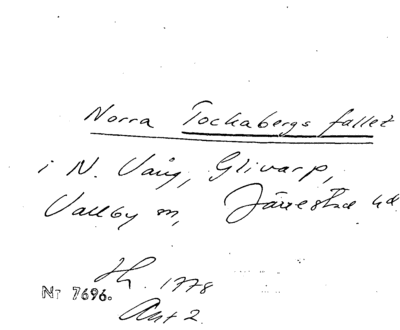 Norra Tockabergs fallet
i N. Vång, Glivarp,
Vallby sn, Järrestad hd
H. 1778
Nr 7696.
Akt 2.